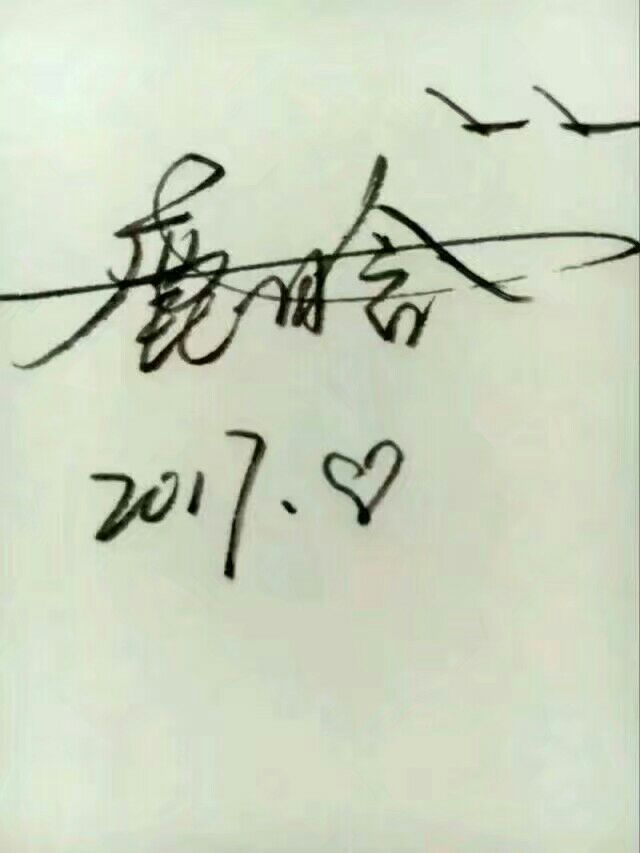 鹿晗
2017.♡